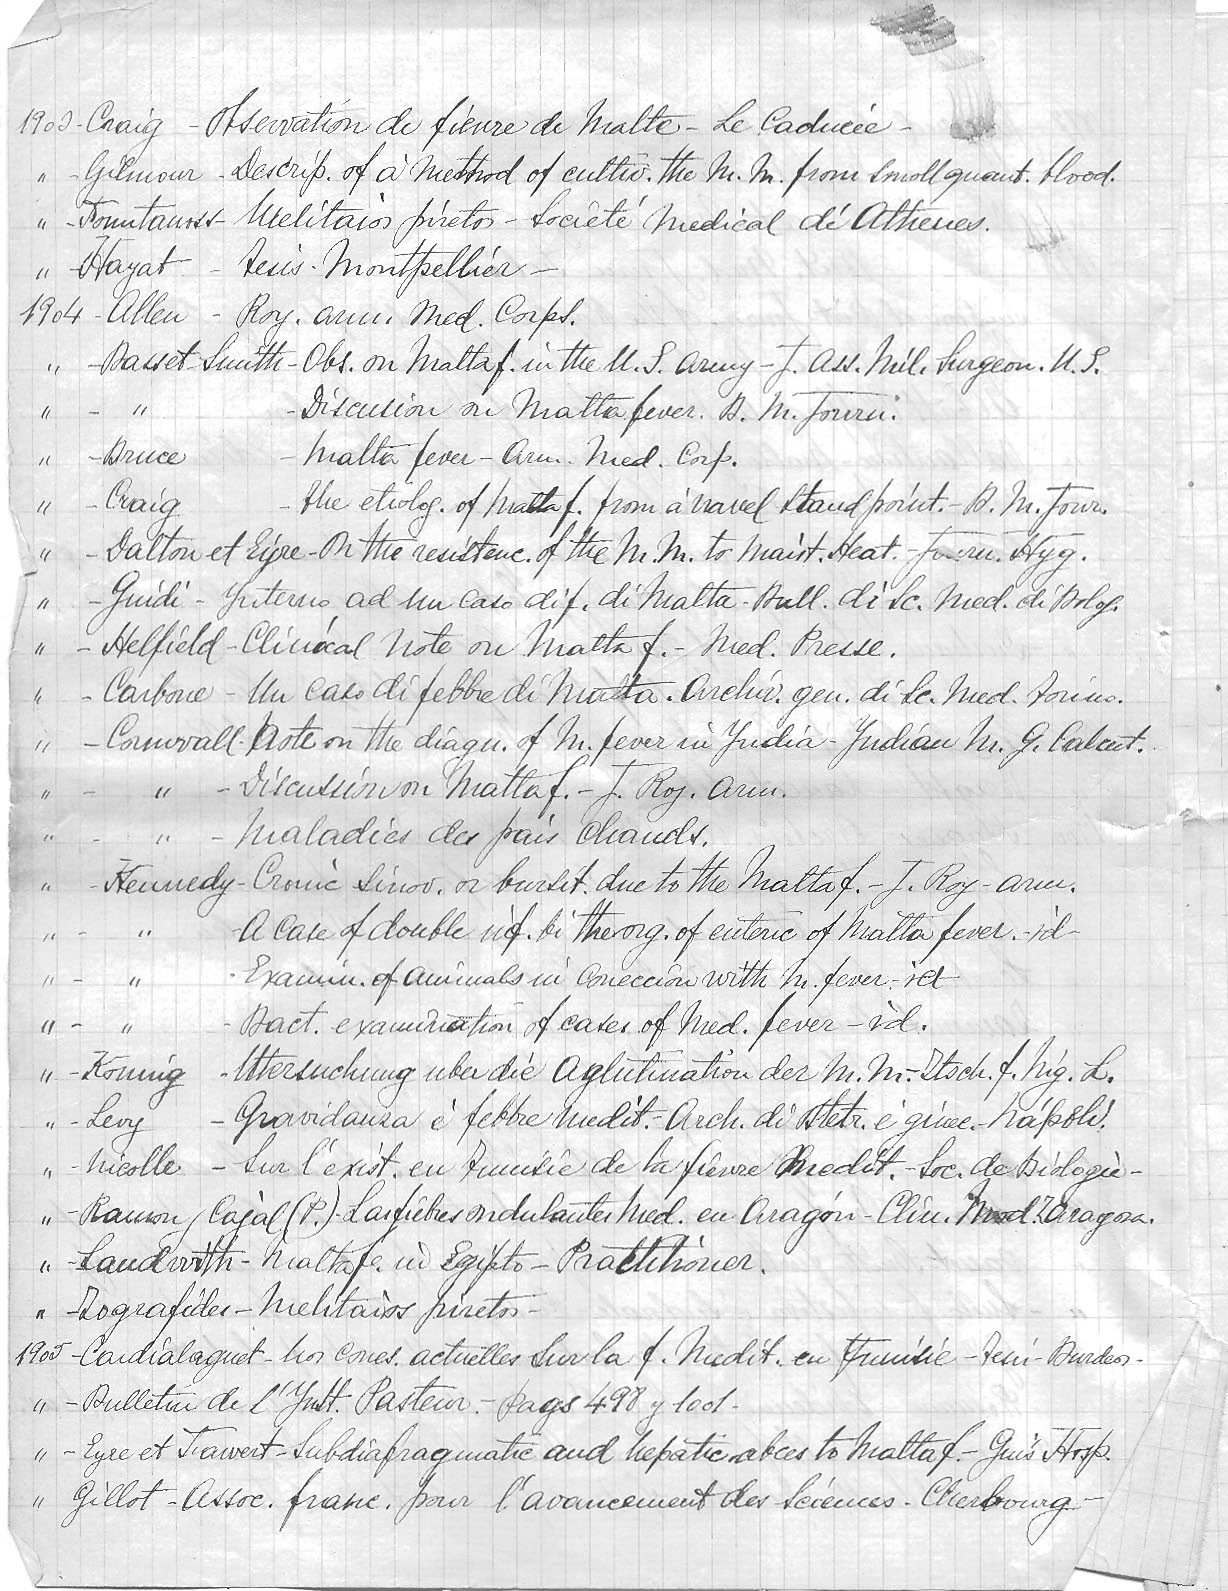 1903 - Craig - Observation de fievre de Malte - Le Caducée -
" - Gilmour - Descrip. of a Method of cultiv. the M. M. from small quant. blood.
" - Melitaios piretos - Société Medical dé Athenes.
" - Hayat - Tesis - Montpellier -
1904 - Allen - Roy. arm. Med. Corps.
" - Basset-Smith - Obs. on Malta f. in the U. S. army - J. Ass. Mil. Surgeon. U. S.
" - " - Discusion on Malta fever. B. M. Journ.
" - Bruce - Malta fever - Arm. Med. Corp.
" - Craig - the etiolog. of Malta f. from a navel Standpoint. - B. M. Jour.
" - Dalton et Eyre - On the resistenc. of the M. M. to Moist. Heat. - Journ. Hyg.
" - Guidi - Yntorno ad un caso di f. di Malta - Bull. di Sc. Med. di Bolog.
" - Helfield - Clinical Note on Malta f. - Med. Presse.
" - Carbone - Un caso di febbre di Malta. Archiv. gen. di Sc. Med. Torino.
" - Cornwall - Note on the diagn. of M. fever in Yndia - Yndian M. G. Calcut.
" - " - Discussion on Malta f. - J. Roy. arm.
" - " - Maladies des pais chauds.
" - Kennedy - Cronic sinov. or bursit. due to the Malta f. - J. Roy - arm.
" - " - A case of double inf. bi the org. of enteric of Malta fever. - id -
" - " - Examin. of animals in coneccion with M. fever - id
" - " - Bact. examination of cases of Med. fever - id.
" - Konnig - Utersuchung uber die Aglutination der M. M. - Ztsch. f. Hig. L.
" - Levy - Gravidanza è febbre medit. - Arch. di Ostetr. é ginec. - Napoli.
" - Nicolle - Sur l'exist. en Tunisie de la fievre Medit. - Soc. de Biologie -
" - Ramon y Cajal (P.) - Las fiebres ondulantes Med. en Aragón - Clin. Mod. Zaragoza.
" - Sandwith - Malta f. in Egipto - Practitioner.
" - Zografides - Melitaios piretos -
1905 - Cardialaguet - conos. actuelles sur la f. Medit. en Tunisie - Tesis - Burdeos -
" - Bulletin de l'Ynst. Pasteur - pags 498 y 1001 -
" - Eyre et Fawert - Subdiafragmatic and hepatic abces to Malta f. - Guis Hosp.
" Gillot - Assoc. franc. pour l'avancement des Sciences - Cherbourg -